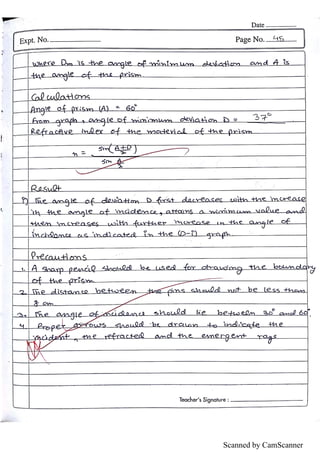 Date
Expt. No.
Page No. 45
where Dm is the angle of minimum deviation and A is
the angle of the prism.
Calculations
Angle of prism (A) = 60°
From graph, angle of minimum deviation D = 37°
Refractive index of the material of the prism
n = sin(A+D)/2
sin A/2
Result
1) The angle of deviation D first decreases with the increase
in the angle of incidence, attains a minimum value and
then increases with further increase in the angle of
incidence as indicated in the (D-i) graph.
Precautions
1. A sharp pencil should be used for drawing the boundary
of the prism.
2. The distance between the pins should not be less than
8 cm
3. The angle of incidence should lie between 30° and 60°
4. Proper arrows should be drawn to indicate the
incident, the refracted and the emergent rays
Teacher's Signature :
Scanned by CamScanner